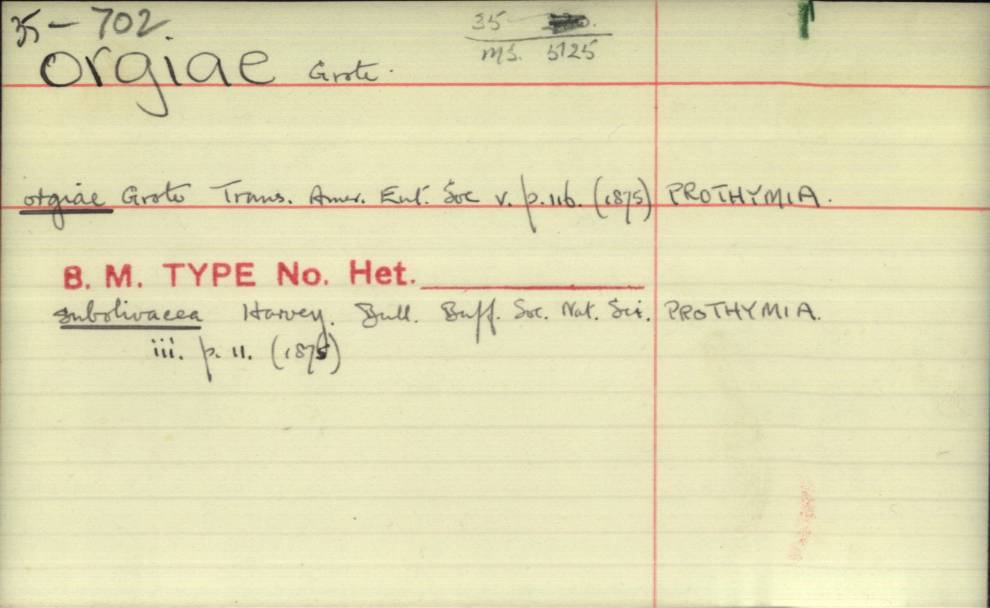 35-702.
35
MS. 5125
orgiae Grote.
orgiae Grote Trans. Amer. Ent. Soc v. p.116. (1875) PROTHYMIA.
B. M. TYPE No. Het.
subolivacea Harvey. Bull. Buff. Soc. Nat. Sci. PROTHYMIA.
iii. p. 11. (1875)